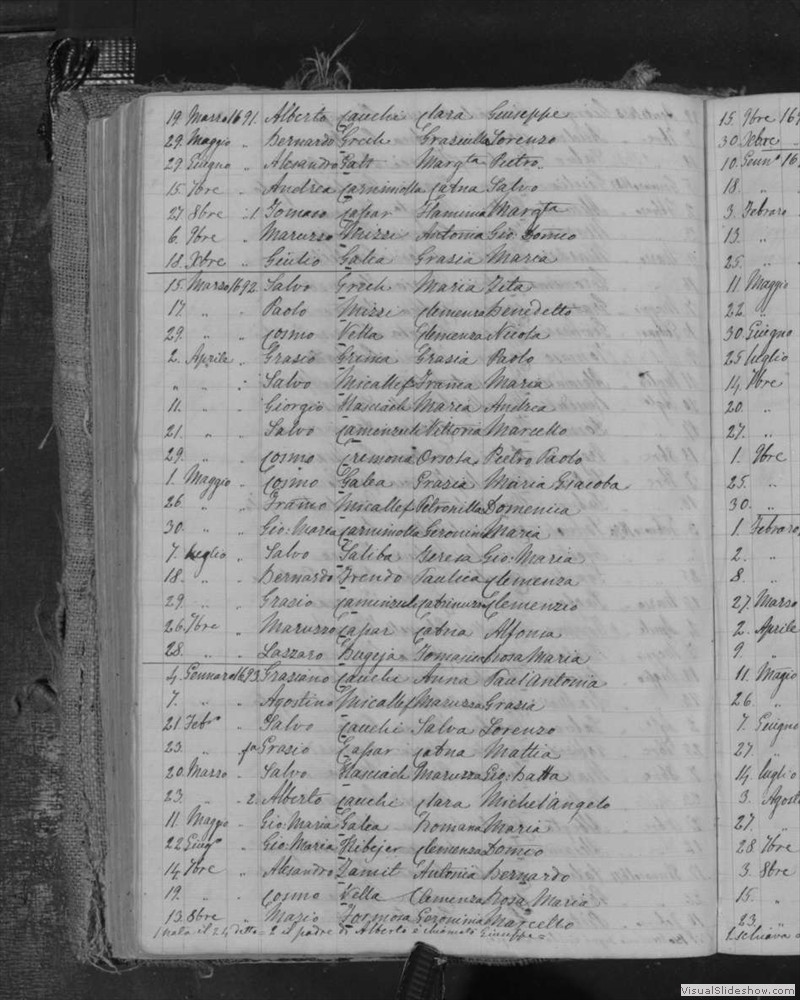 19. Marzo 1691. Alberto Cauchi Clara Giuseppe
29. Maggio " Bernardo Grech Graziulla Lorenzo
29. Giugno " Alesandro Galt Margta Pietro
15. 7bre " Andrea Carnimolla Catna Salvo
27 8bre Tomaso Caspar Flaminia Margta
6. 9bre " Maruzzo Mizzi Antonia Gio Domco
18. Xbre " Giulio Galea Grazia Maria
15 Marzo 1692. Salvo Grech Maria Zita
17. " " Paolo Mizzi Clemenza Benedetto
29. " " Cosmo Vella Clemenza Nicola
2. Aprile " Grazio Grima Grazia Paolo
" " Salvo Micallef Franca Maria
11. " " Giorgio Hasciach Maria Andrea
21. " " Salvo Camenzuli Vittoria Marcello
29. " " Cosmo Cremona Orsola Pietro Paolo
1. Maggio " Cosmo Galea Grazia Maria Giacoba
26 " " Franco Micallef Petronilla Domenica
30. " " Gio: Maria Carnimolla Geronima Maria
7 Luglio " Salvo Saliba Teresa Gio: Maria
18. " " Bernardo Frendo Paulica Clemenza
29. " " Grazio Camenzuli Catrinuzza Clemenzio
26. 7bre " Maruzzo Caspar Catna Alfonsa
28. " " Lazzaro Bugeja Tomasina Rosa Maria
4. Gennaro 1693. Graziano Cauchi Anna Paul'Antonia
7. " " Agostino Micallef Maruzza Grazia
21 Febo " Salvo Cauchi Salva Lorenzo
23 " Grazio Caspar Catna Mattia
20. Marzo " Salvo Hasciach Maruzza Gio: Batta
23. " 2. Alberto Cauchi Clara Michel'angelo
11. Maggio " Gio: Maria Galea Romana Maria
22 Giugo " Gio: Maria Hibejer Clemenza Domco
14 7bre " Alesandro Zamit Antonia Bernardo
19. " " Cosmo Vella Clemenza Rosa Maria
13. 8bre " Mazio Formosa Geronima Marcello
1 nato il 24 detto = 2 il padre di Alberto è chiamato Giuseppe =
15. 9bre 169
30. Xbre
10. Genno 16
18. "
3. Febraro
13. "
25. "
11. Maggio
22. "
30 Giugno
25 luglio
14. 7bre
20. "
27. "
1. 9bre
25. "
30. "
1. Febraro
2. "
8. "
27. Marzo
2. Aprile
9. "
11. Magio
26. "
7. Giugno
27. "
14. luglio
3. Agosto
27. "
28. 7bre
3. 8bre
15. "
23. "
1. schiava
VisualSlideshow.com